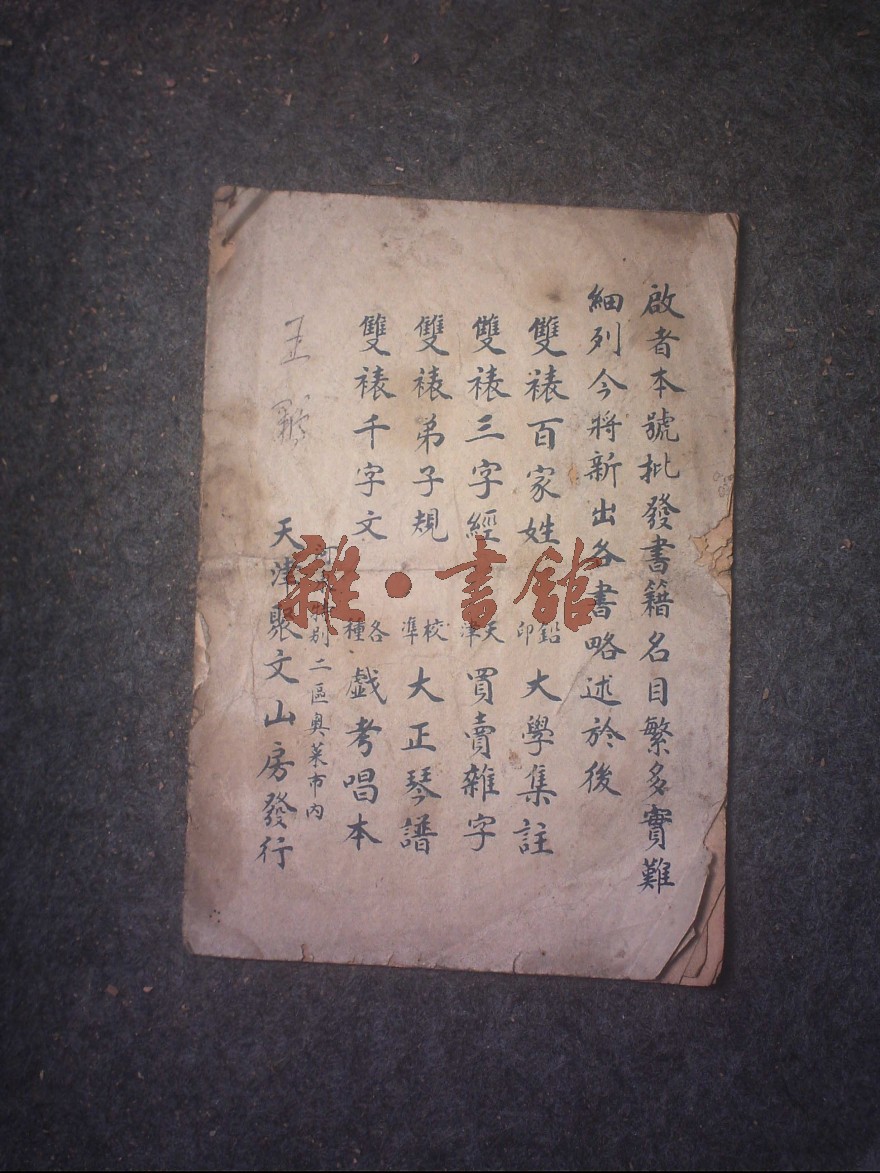 啟者本號批發書籍名目繁多實難
細列今將新出各書略述於後
雙裱百家姓 鉛印大學集註
雙裱三字經 天津買賣雜字
雙裱弟子規 校準大正琴譜
雙裱千字文 各種戲考唱本
別二區奥菜市内
天津聚文山房發行
王
雜·書館